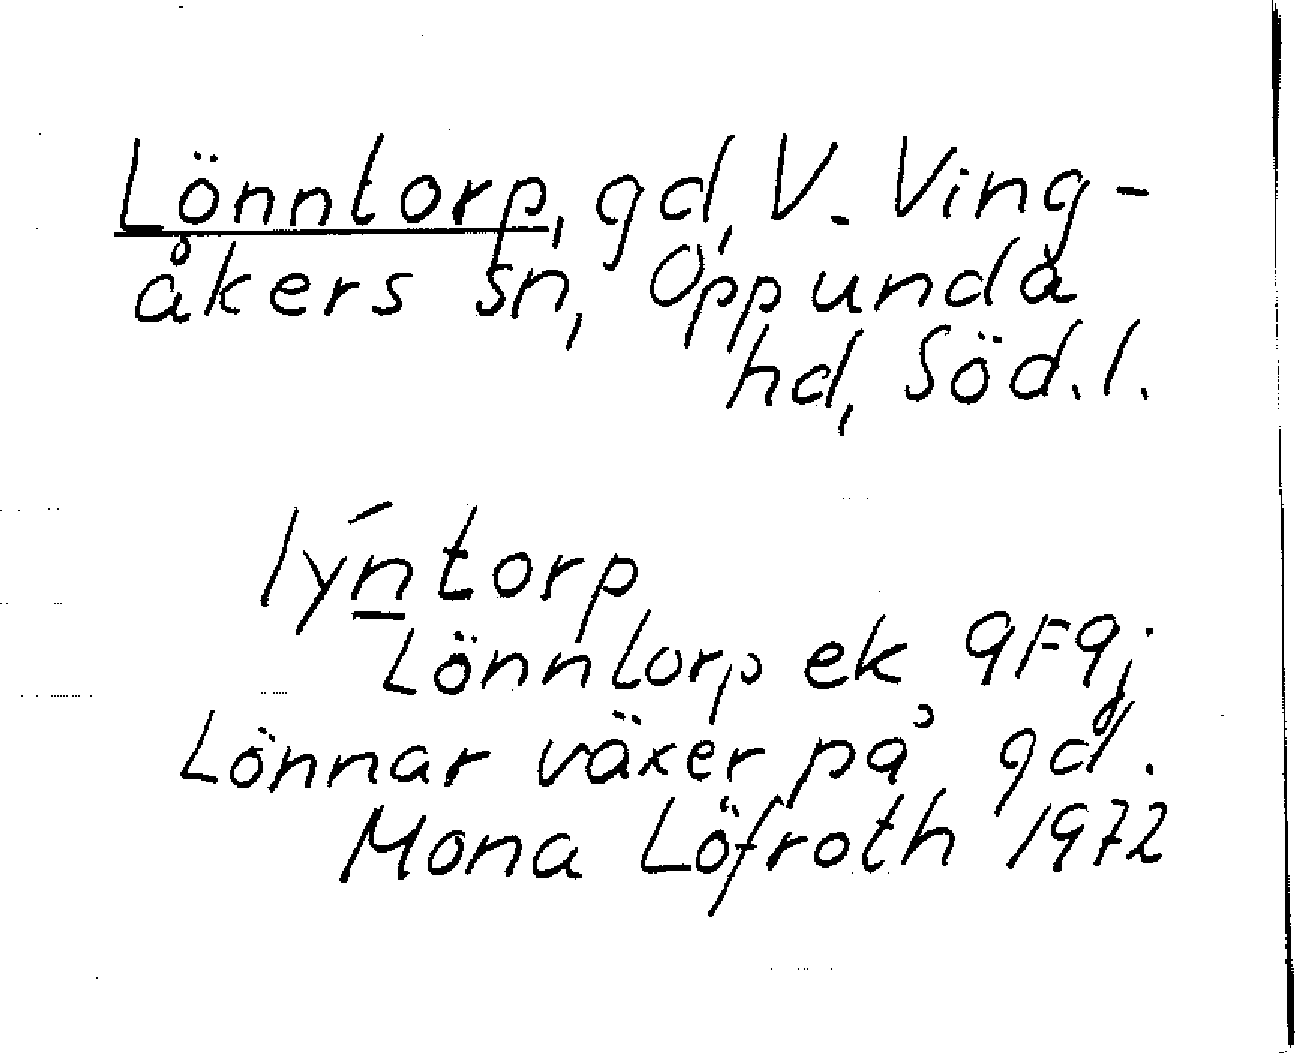 Lönntorp, gd, V. Ving-
åkers sn, Oppunda
hd, Söd.l.
lýntorp
Lönntorp ek 9F9j
Lönnar växer på gd.
Mona Löfroth 1972